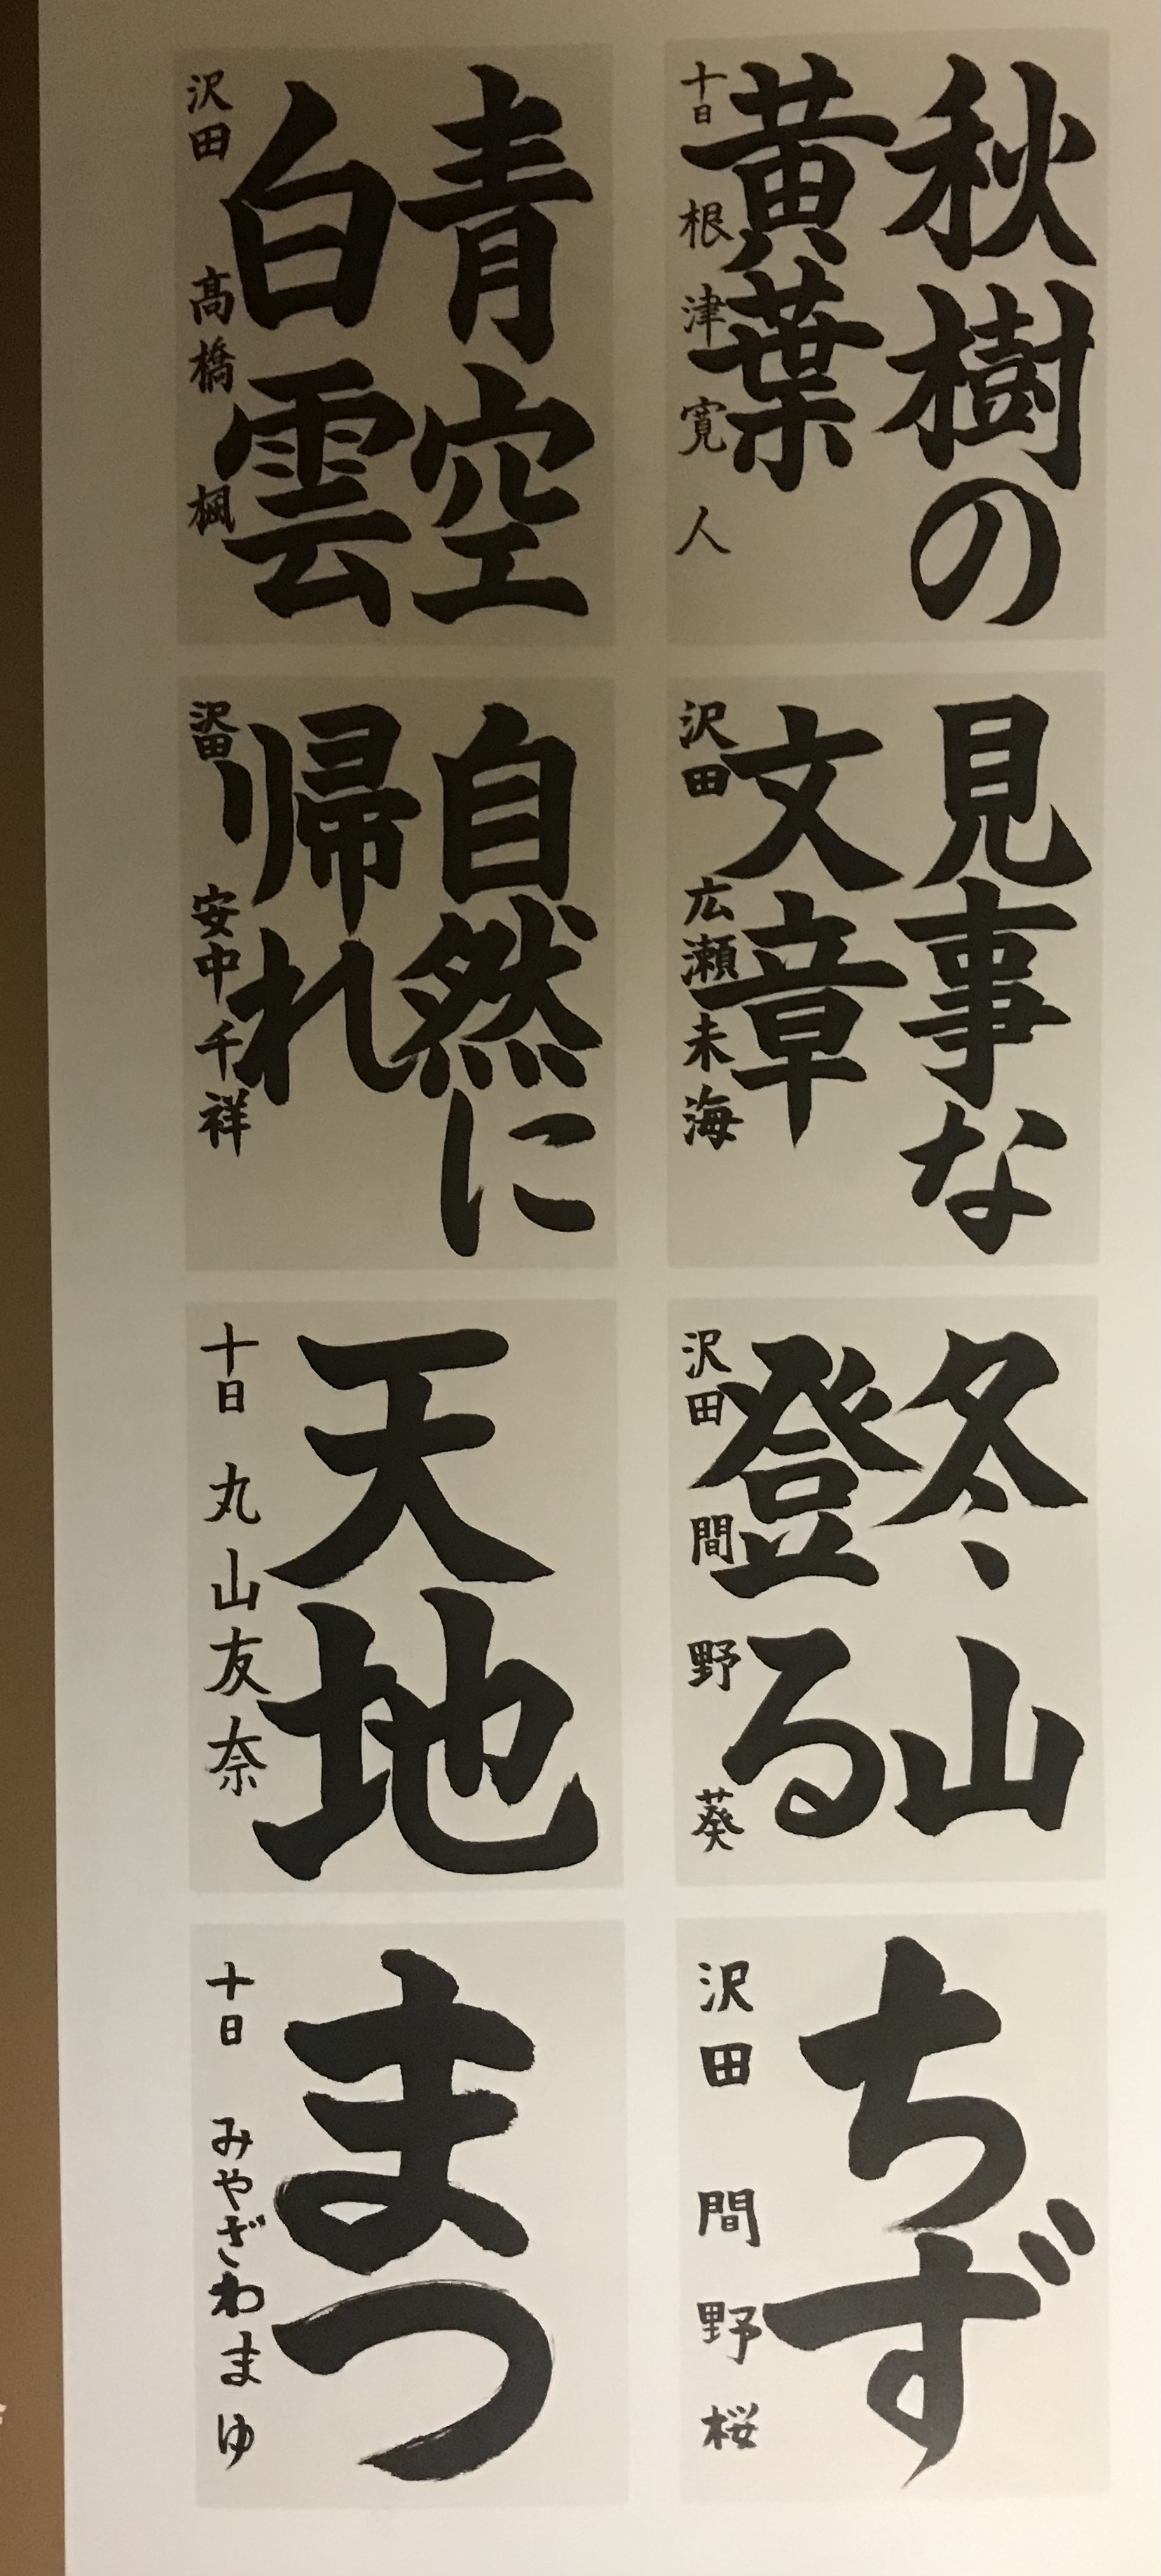 秋樹の
黄葉
十日 根津寛人
青空
白雲
沢田 髙橋 楓
見事な
文章
沢田 広瀬未海
自然に
帰れ
沢田 安中千祥
冬山
登る
沢田 間野 葵
天地
十日 丸山友奈
ちず
沢田 間野桜
まつ
十日 みやざわまゆ